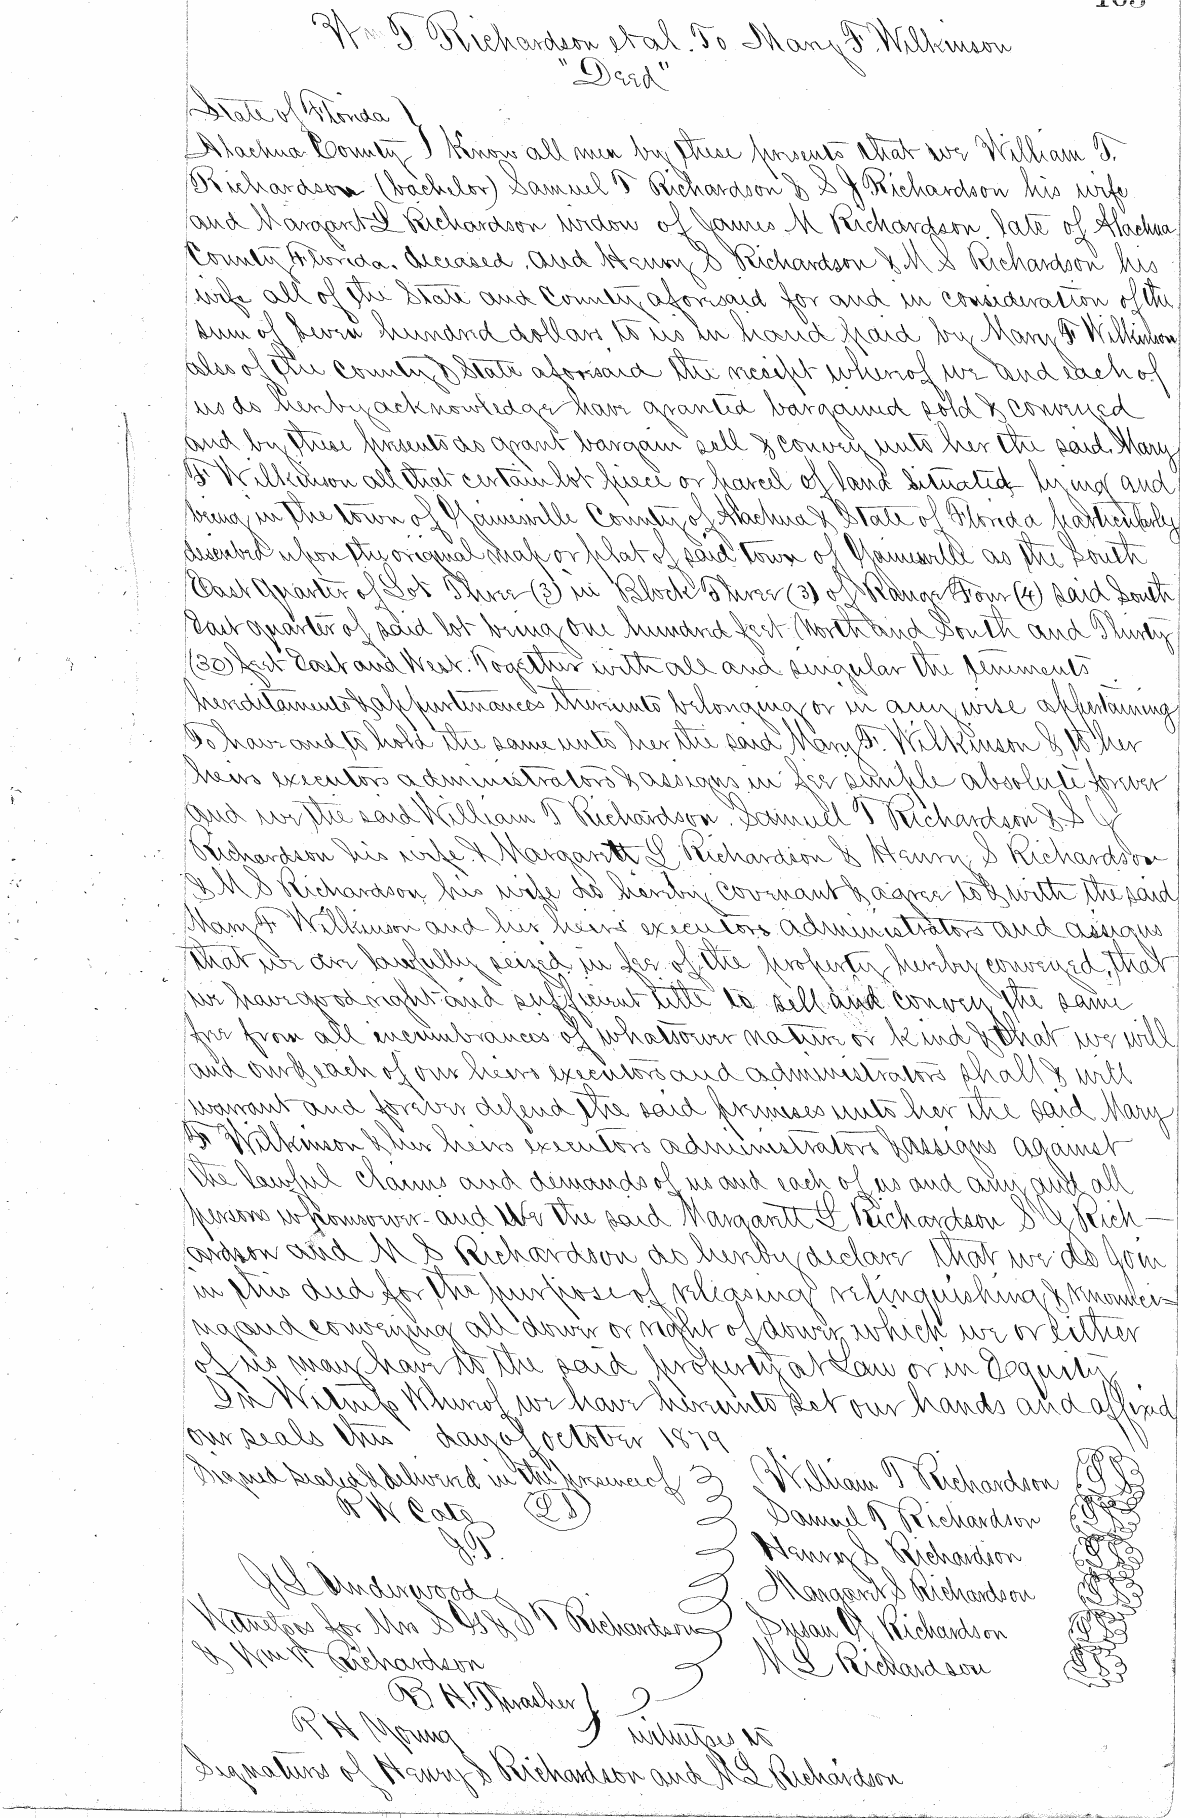 Wm T Richardson et al. To Mary F. Wilkinson
"Deed"
State of Florida }
Alachua County } Know all men by these presents that we William T.
Richardson (bachelor) Samuel T Richardson & S J Richardson his wife
and Margaret L Richardson widow of James M Richardson late of Alachua
County Florida. deceased, and Henry S Richardson & M S Richardson his
wife all of the State and County aforesaid for and in consideration of the
sum of Seven hundred dollars to us in hand paid by Mary F Wilkinson
also of the County & State aforesaid the receipt whereof we and each of
us do hereby acknowledge have granted bargained sold & conveyed
and by these presents do grant bargain sell & convey unto her the said Mary
F Wilkinson all that certain lot piece or parcel of land situated lying and
being in the town of Gainesville County of Alachua & State of Florida particularly
described upon the original map or plat of said town of Gainesville as the South
East Quarter of Lot Three (3) in Block Three (3) of Range Four (4) said South
East quarter of said lot being one hundred feet North and South and Thirty
(30) feet East and West. Together with all and singular the tenements
hereditaments & appurtenances thereunto belonging or in any wise appertaining
To have and to hold the same unto her the said Mary F. Wilkinson & to her
heirs executors administrators & assigns in fee simple absolute forever
and we the said William T Richardson. Samuel T Richardson & S J
Richardson his wife & Margarett L Richardson & Henry S Richardson
& M S Richardson his wife do hereby covenant & agree to & with the said
Mary F Wilkinson and her heirs executors administrators and assigns
that we are lawfully seized in fee of the property hereby conveyed, that
we have good right and sufficient title to sell and convey the same
free from all incumbrances of whatsoever nature or kind & that we will
and our & each of our heirs executors and administrators shall & will
warrant and forever defend the said premises unto her the said Mary
F Wilkinson & her heirs executors administrators & assigns against
the lawful claims and demands of us and each of us and any and all
persons whomsoever and We the said Margarett L Richardson S J Rich-
ardson and M S Richardson do hereby declare that we do join
in this deed for the purpose of releasing relinquishing & renounci-
ng and conveying all dower or right of dower which we or either
of us may have to the said property at Law or in Equity
In Witness Whereof we have hereunto set our hands and affixed
our seals this day of October 1879
Signed sealed & delivered in the presence of William T Richardson
R W Cato (LS) Samuel T Richardson
J.P. Henry S Richardson
J L Underwood Margaret S Richardson
Witness for Wm S G & S T Richardson Susan J Richardson
& Wm T Richardson M L Richardson
B H. Thrasher
R H Young witnesses to
Signatures of Henry S Richardson and M L Richardson